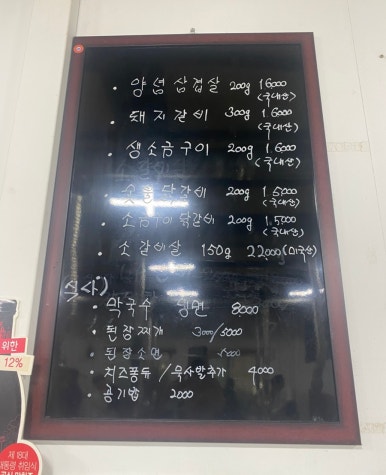 양념삼겹살 200g 16000
(국내산)
돼지갈비 300g 1.6000
(국내산)
생소금구이 200g 1.6000
(국내산)
숯불닭갈비 200g 1.5000
(국내산)
소금구이닭갈비 200g 1.5000
(국내산)
소갈비살 150g 22,000 (미국산)
식사)
막국수 냉면 8000
된장찌개 3000/5000
된장소면
치즈퐁듀/묵사발추가 4000
공기밥 2000
위한
12%
제18대
대통령 취임식